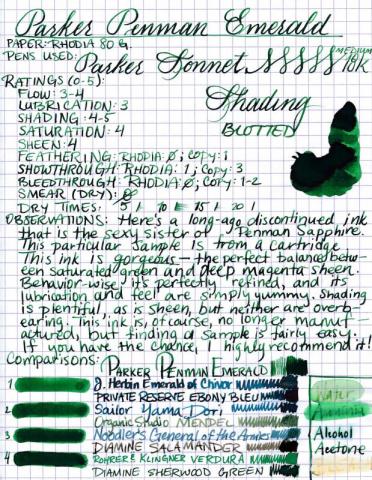 Parker Penman Emerald
PAPER: RHODIA 80 G.
PENS USED: Parker Sonnet MEDIUM 18k
RATINGS (0-5):
FLOW: 3-4
LUBRICATION: 3
SHADING: 4-5
SATURATION: 4
SHEEN: 4
Shading
BLOTTED
FEATHERING: RHODIA: Ø; COPY: 1
SHOWTHROUGH: RHODIA: 1; COPY: 3
BLEEDTHROUGH: RHODIA: Ø; COPY: 1-2
SMEAR (DRY): Ø
DRY TIMES: 5 | 10 | 15 | 20 |
OBSERVATIONS: Here's a long-ago discontinued ink
that is the sexy sister of Penman Sapphire.
This particular sample is from a cartridge
This ink is gorgeous — the perfect balance betw-
een saturated green and deep magenta sheen.
Behavior-wise it's perfectly refined, and its
lubrication and feel are simply yummy. Shading
is plentiful, as is sheen, but neither are overb-
earing. This ink is, of course, no longer manuf-
actured, but finding a sample is fairly easy.
If you have the chance, I highly recommend it!
Comparisons:
PARKER PENMAN EMERALD
1 J. Herbin Emerald of Chivor
PRIVATE RESERVE EBONY BLUE
2 Sailor Yama Dori
Organic Studio MENDEL
3 Noodler's General of the Armies
DIAMINE SALAMANDER
4 ROHRER & KLINGNER VERDURA
DIAMINE SHERWOOD GREEN
Water
Ammonia
Alcohol
Acetone